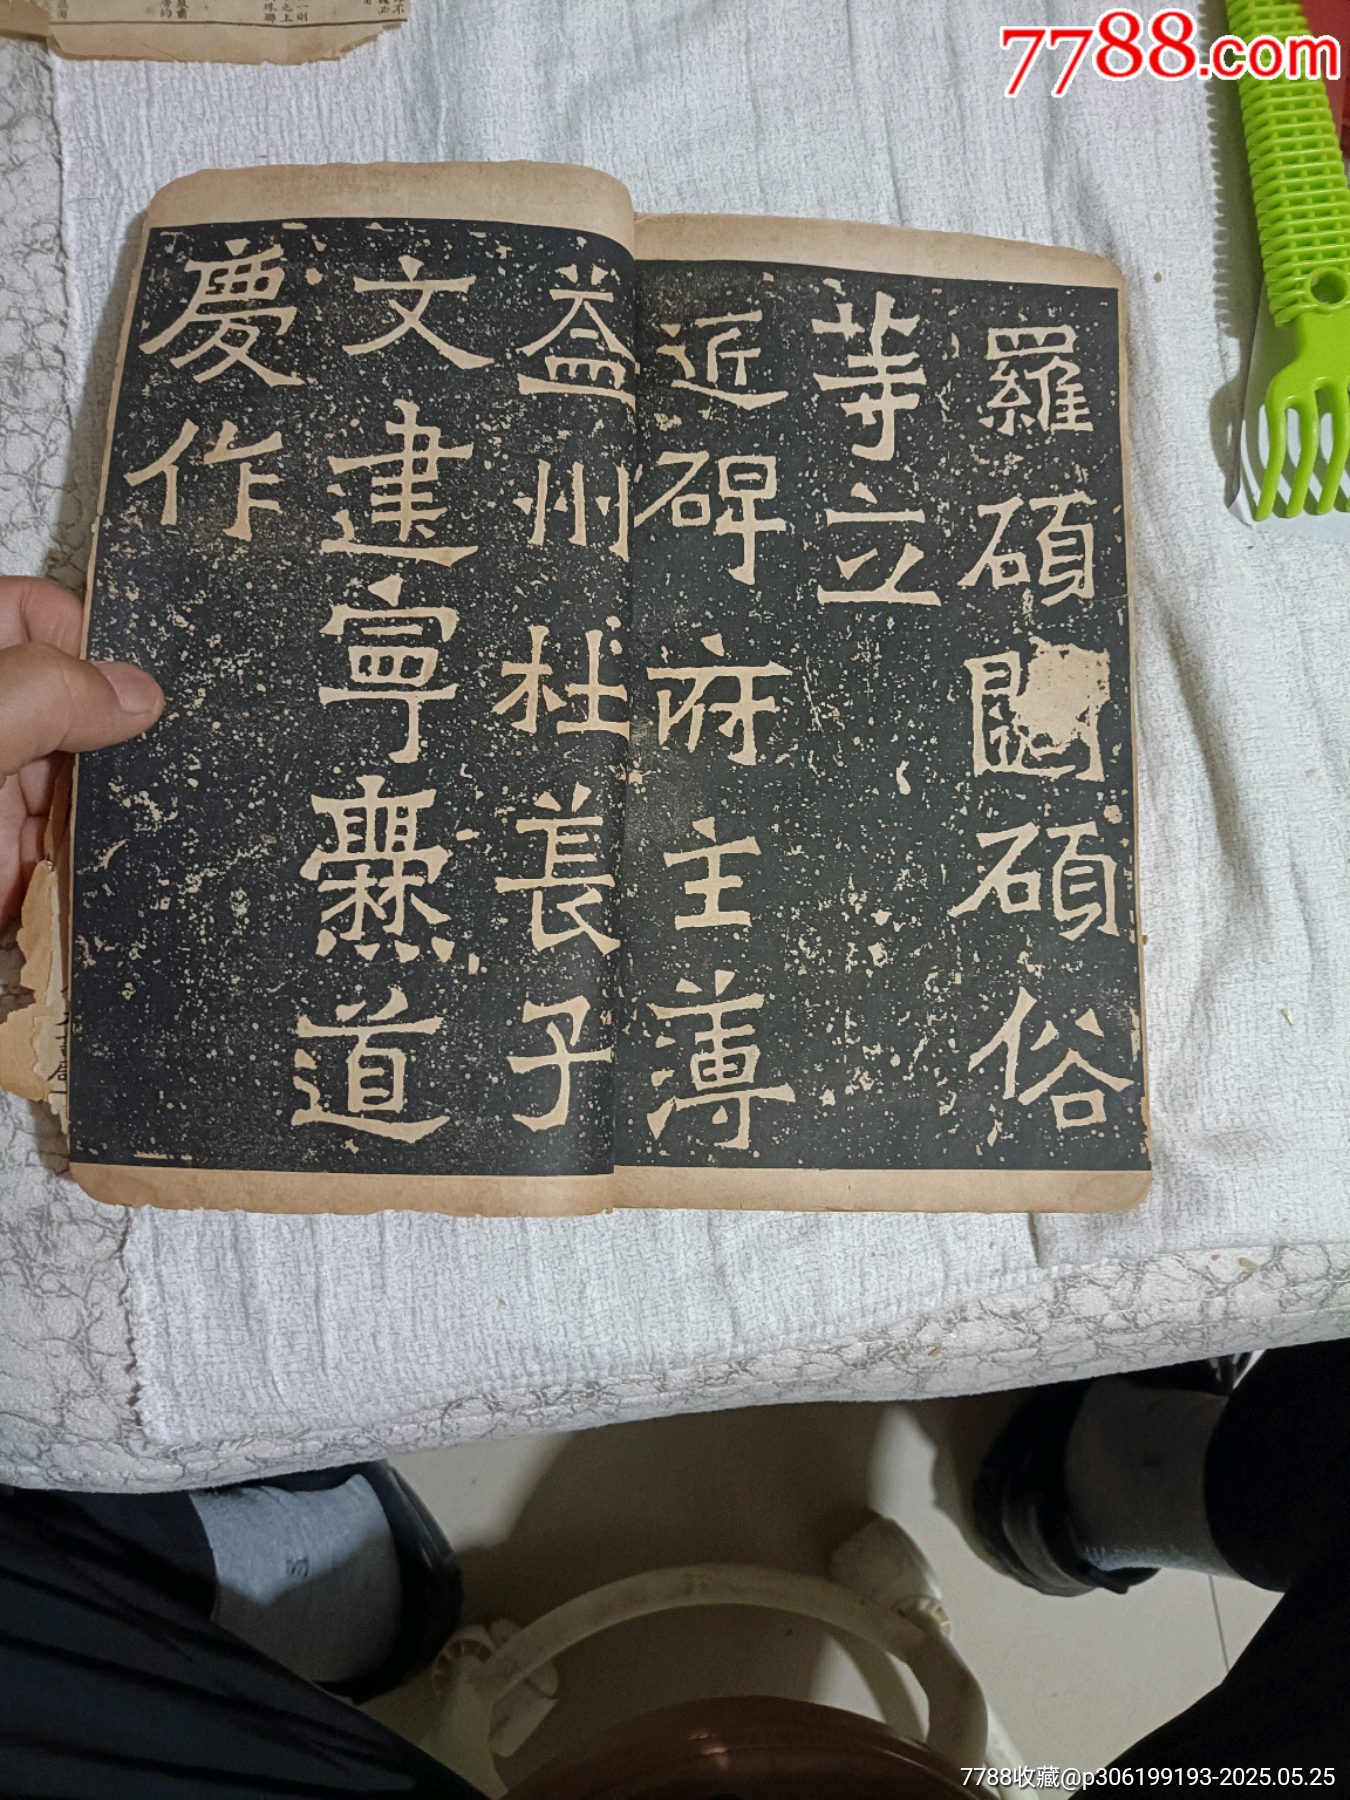 7788.com
羅碩 碩俗
等立
近碑府主薄
益州杜萇子
文建寧爨道
慶作
7788收藏@p306199193-2025.05.25